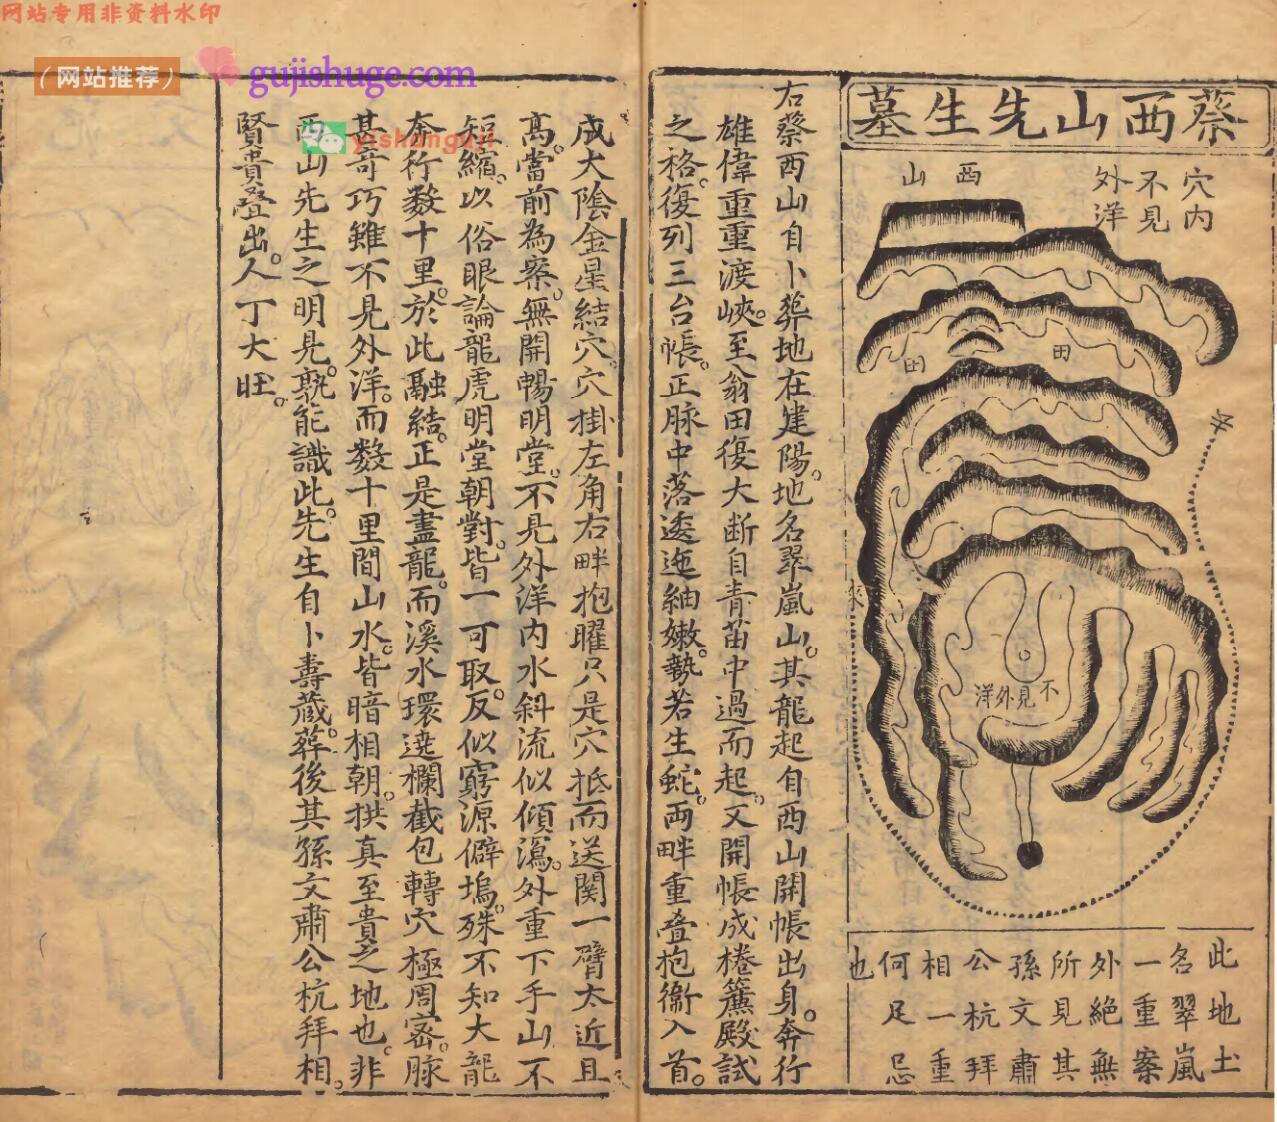 网站专用非资料水印
（网站推荐）
gujishuge.com
yishunguji
蔡西山先生墓
穴内
不見
外洋
西山
田
田
水
來
不見外洋
此地土
名翠嵐
一重案
外絶無
所見其
孫文肅
公杭拜
相一重
何足忌
也
右蔡西山自卜葬地在建陽地名翠嵐山其龍起自西山開帳出身奔行
雄偉重重渡峽至翁田復大断自青苗中過而起又開帳成捲簾殿試
之格復列三台帳正脉中落逶迤紬嫩勢若生蛇兩畔重叠抱衞入首
成大陰金星結穴穴掛左角右畔抱曜只是穴抵而送関一臂太近且
髙當前為案無開暢明堂不見外洋内水斜流似傾瀉外重下手山不
短縮以俗眼論龍虎明堂朝對皆一可取反似窮源僻塢殊不知大龍
奔行数十里於此融結正是盡龍而溪水環遶欄截包轉穴極周密脉
甚奇巧雖不見外洋而数十里間山水皆暗相朝拱真至貴之地也非
西山先生之明見孰能識此先生自卜壽蔵葬後其孫文肅公杭拜相
賢貴叠出人丁大旺